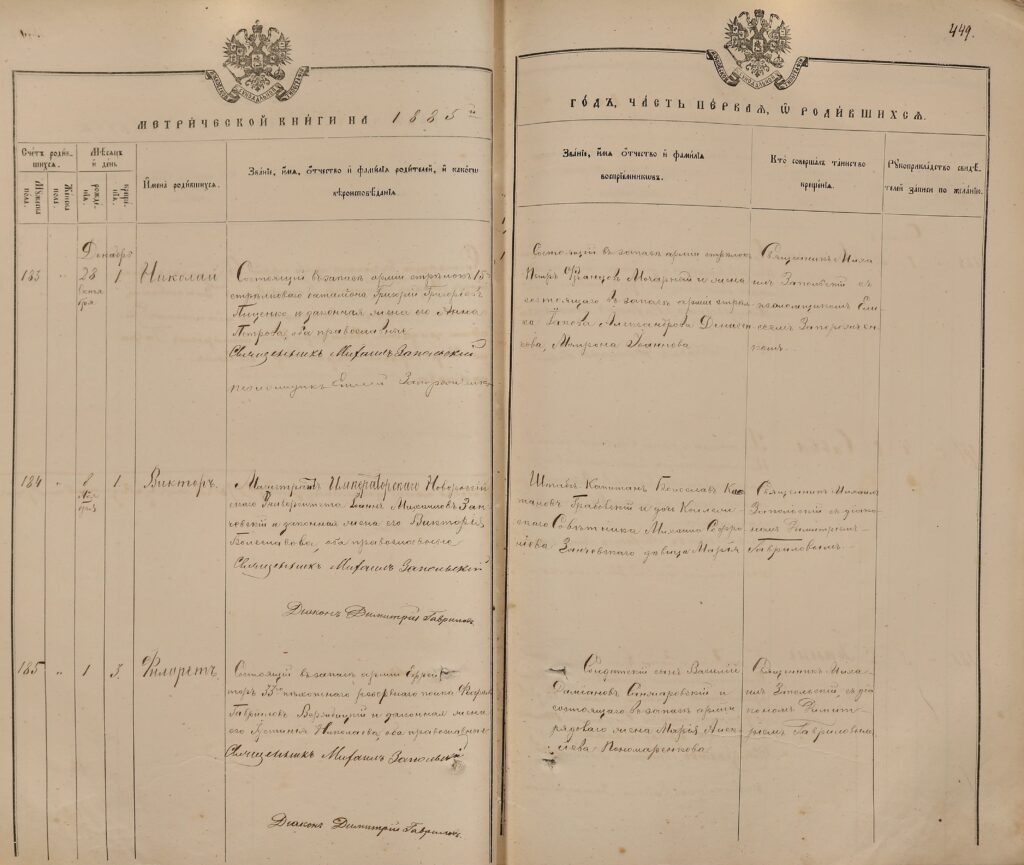 449.
МЕТРИЧЕСКОЙ КНИГИ НА 1885 й
ГОДЪ, ЧАСТЬ ПЕРВАЯ, Ѿ РОДИВШИХСЯ.
Счетъ родив-
шихся.
Мужеска
пола
Женска
пола
Мѣсяцъ
и день
рожде-
нія.
креще-
нія.
Имена родившихся.
Званіе, имя, отчество и фамилія родителей, и какого
вѣроисповѣданія
Званіе, имя отчество и фамилія
воспріемниковъ.
Кто совершалъ таинство
крещенія.
Рукоприкладство свидѣ-
телей записи по желанію.
Декабрь
183 " 28 1 Николай
Состоящій въ запасѣ арміи стрѣлокъ 15
стрѣлковаго баталіона Григорій Григорьевъ
и законная жена его Анна
Петрова, оба православные
Священникъ Михаилъ Запольскій
Состоящій въ запасѣ арміи стрѣлокъ
Петръ и жена
состоящаго въ запасѣ арміи стрѣл-
ка Александрова
Священникъ Миха-
илъ Запольскій съ
184 " 8 1 Викторъ.
Магистръ Императорскаго Новороссій-
скаго Университета Иванъ Михаиловъ Зан-
чевскій и законная жена его Викторія
Болеславова, оба православные
Священникъ Михаилъ Запольскій
Діаконъ Димитрій Гавриловъ
Штабсъ Капитанъ Болеславъ
Грабовскій и дочь Коллеж-
скаго Совѣтника Михаила Софро-
ніева Занчевскаго дѣвица Марія
Священникъ Михаилъ
Запольскій съ діако-
номъ Димитріемъ
Гавриловымъ
185 " 1 3. Филаретъ.
Состоящій въ запасѣ арміи Ефрей-
торъ пѣхотнаго резервнаго полка
Гавриловъ и законная жена
его Николаева, оба православные
Священникъ Михаилъ Запольскій
Діаконъ Димитрій Гавриловъ
Солдатскій сынъ Василій
Даміановъ и
состоящаго въ запасѣ арміи
рядоваго жена Марія Алек-
сіева Пономаренкова
Священникъ Миха-
илъ Запольскій, съ діа-
кономъ Димит-
ріемъ Гавриловымъ